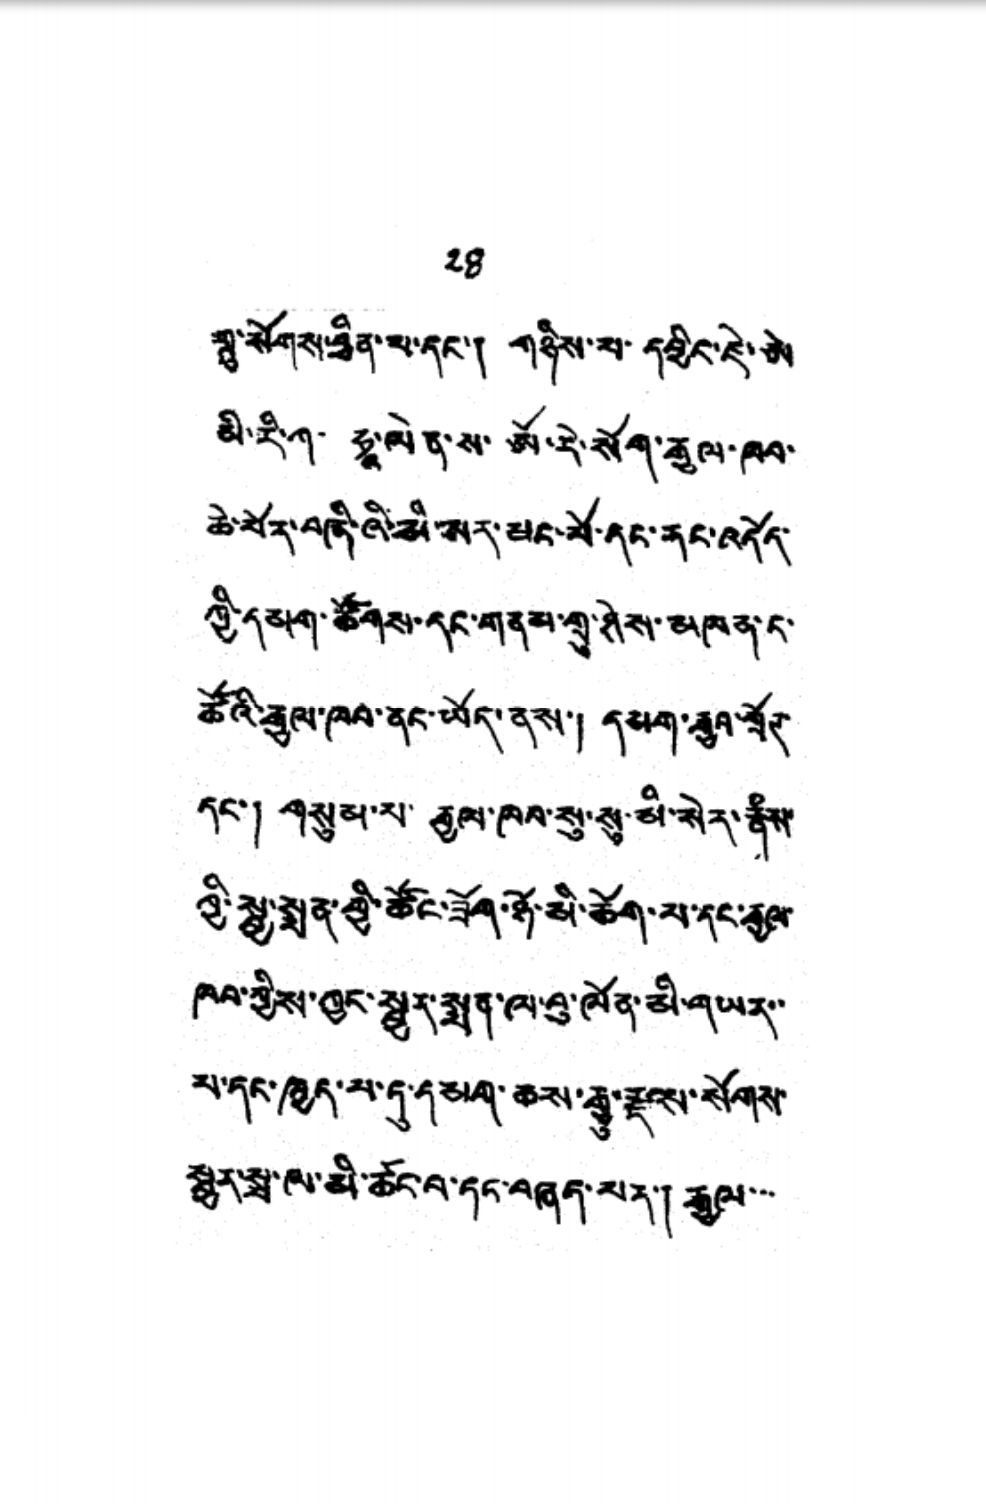 28
སྐུ་སོགས་བྱིན་པ་དང་། གཉིས་པ་ དབྱིང་ཇེ་ཨེ
མི་རི་ཀ་ ཨོ་རེ་སོག་རྒྱལ་ཁབ་
ཆེ་པོར་བཞི་འི་མི་མར་མང་པོ་དང་རང་འདོད་
ཀྱི་དམག་ཚོགས་དང་གནམ་གྲུ་ཤེས་མཁན་ང་
ཚོའི་རྒྱལ་ཁབ་ནང་ཡོད་ནས། དམག་རྒྱབ་སྐོར་
དང་། གསུམ་པ་ རྒྱལ་ཁབ་སུ་སུ་མི་སེར་རྣམས་
ཀྱི་སྐྱུ་སྨན་གྱི་ཚོང་ཟོག་ཉོ་མི་ཆོག་པ་དང་རྒྱལ་
ཁབ་ཀྱིས་ཀྱང་སྐྱུར་སྨན་ལ་བུ་ལོན་མི་གཡར་
པ་དང་ཁྱད་པ་དུ་དམག་ཆས་རྒྱུ་རྫས་སོགས་
སྐྱུར་སྨ་ལ་མི་ཚོང་བ་དང་བཞད་པར། རྒྱལ...